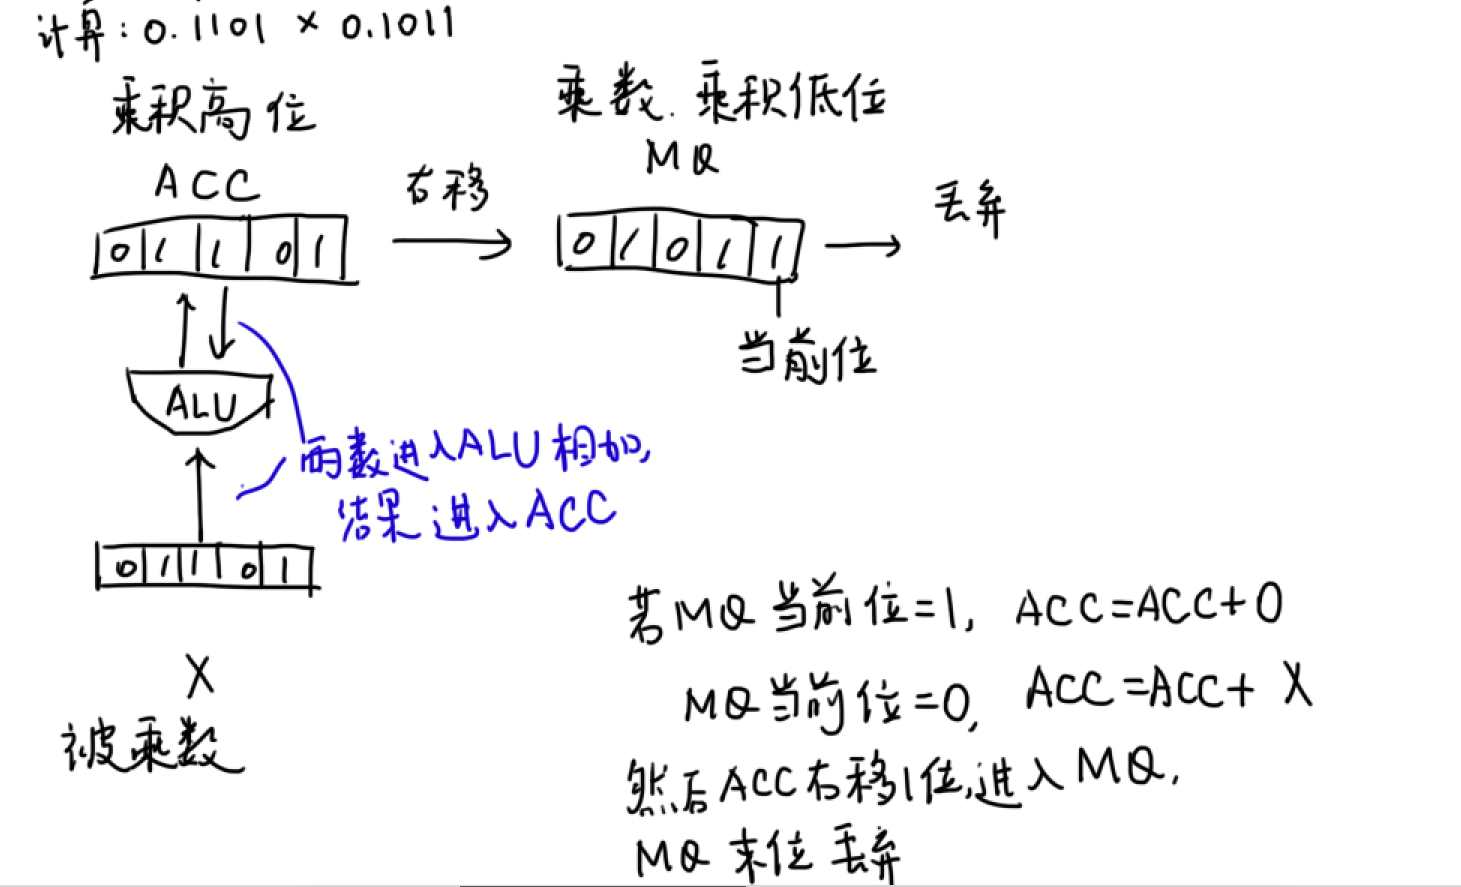 计算:0.1101 × 0.1011
乘积高位
乘数.乘积低位
ACC
MQ
右移
丢弃
0 1 1 0 1
0 1 0 1 1
当前位
ALU
两数进入ALU相加,
结果进入ACC
0 1 1 0 1
X
被乘数
若MQ当前位=1, ACC=ACC+0
MQ当前位=0, ACC=ACC+ X
然后ACC右移1位,进入MQ,
MQ末位丢弃